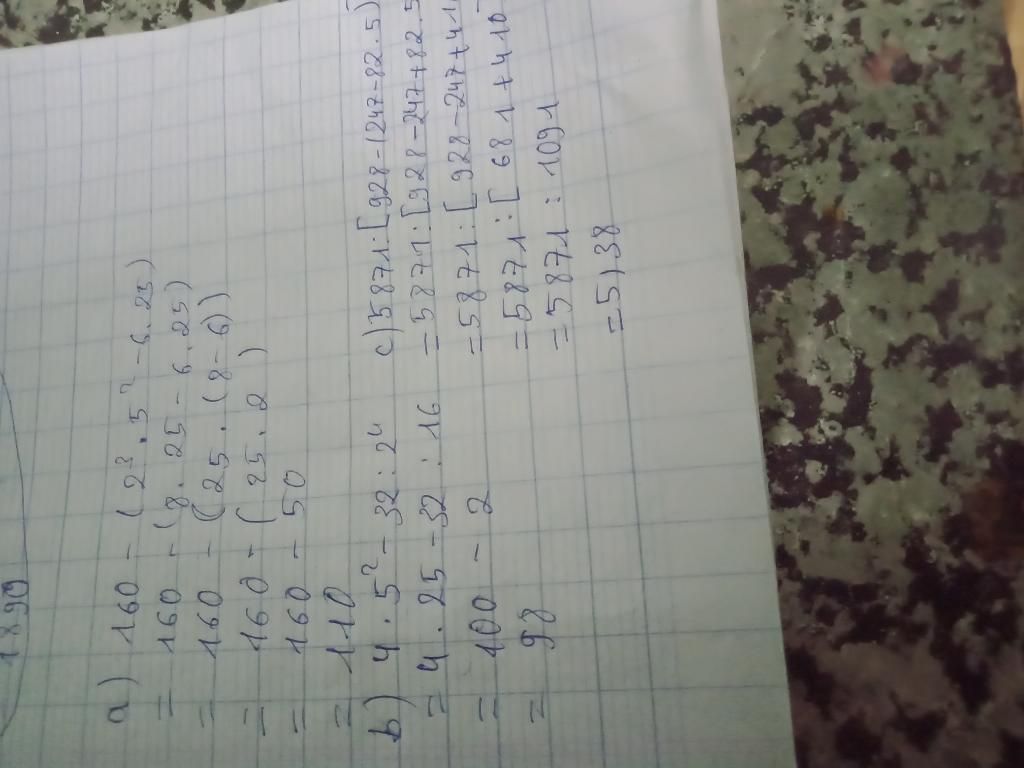 1890
a) 160 - (2³ . 5² - 6.25)
= 160 - (8. 25 - 6.25)
= 160 - (25 . (8-6))
= 160 - ( 25 . 2 )
= 160 - 50
= 110
b) 4 . 5² - 32 : 2⁴
= 4 . 25 - 32 : 16
= 100 - 2
= 98
c) 5871:[928-(247-82.5)
=5871:[928-247+82.5
=5871:[928-247+41
=5871:[681+410
=5871:1091
=5,38